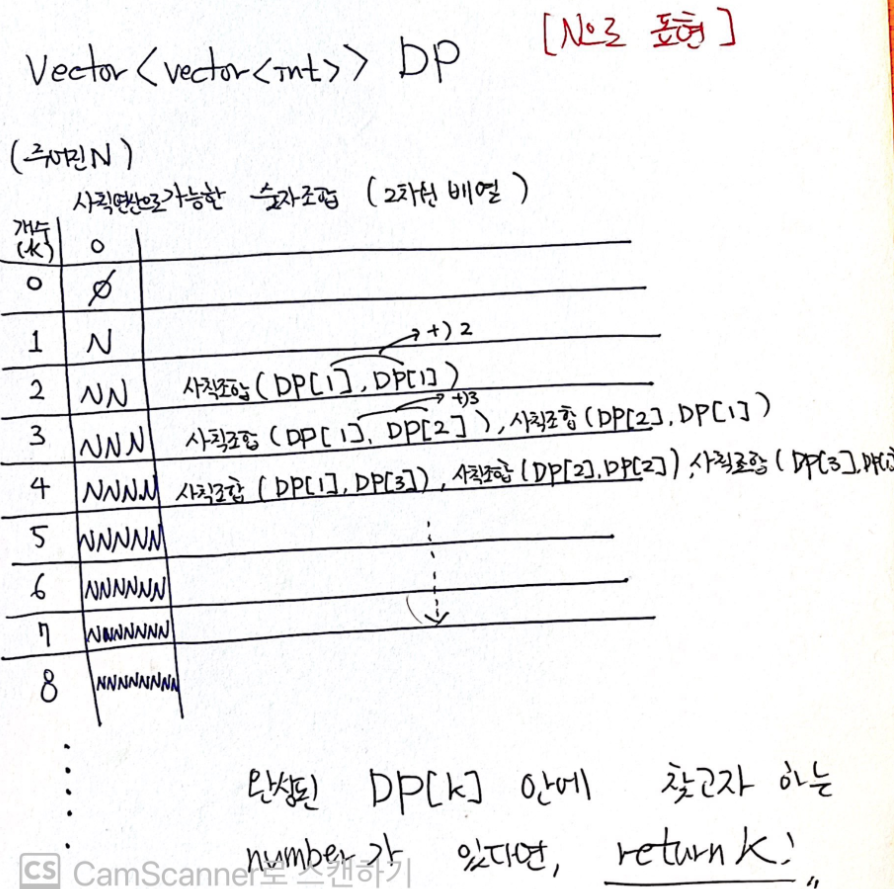 [N으로 표현]
Vector<vector<int>> DP
(주어진 N)
사칙연산으로 가능한 숫자조합 (2차원 배열)
개수 (k) 0
0 ∅
1 N
+) 2
2 NN 사칙조합 (DP[1], DP[1])
+) 3
3 NNN 사칙조합 (DP[1], DP[2]), 사칙조합 (DP[2], DP[1])
4 NNNN 사칙조합 (DP[1], DP[3]), 사칙조합 (DP[2], DP[2]), 사칙조합 (DP[3], DP[1]
5 NNNNN
6 NNNNNN
7 NNNNNNN
8 NNNNNNNN
완성된 DP[k] 안에 찾고자 하는
number가 있다면, return k!
CS CamScanner로 스캔하기